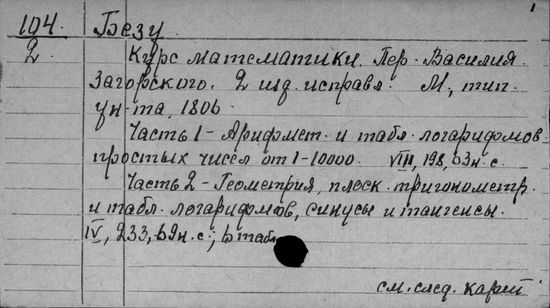 1
104. Безу.
2 Курс математики. Пер. Василия
Загорского. 2 изд. исправл. М., тип.
ун-та, 1806.
Часть 1 - Арифмет. и табл. логарифмов
простых чисел от 1-10000. VIII, 198, 63 н. с.
Часть 2 - Геометрия, плоск. тригонометр.
и табл. логарифмов, синусы и тангенсы.
IV, 233, 69 н. с.; 6 табл.
см. след. карт